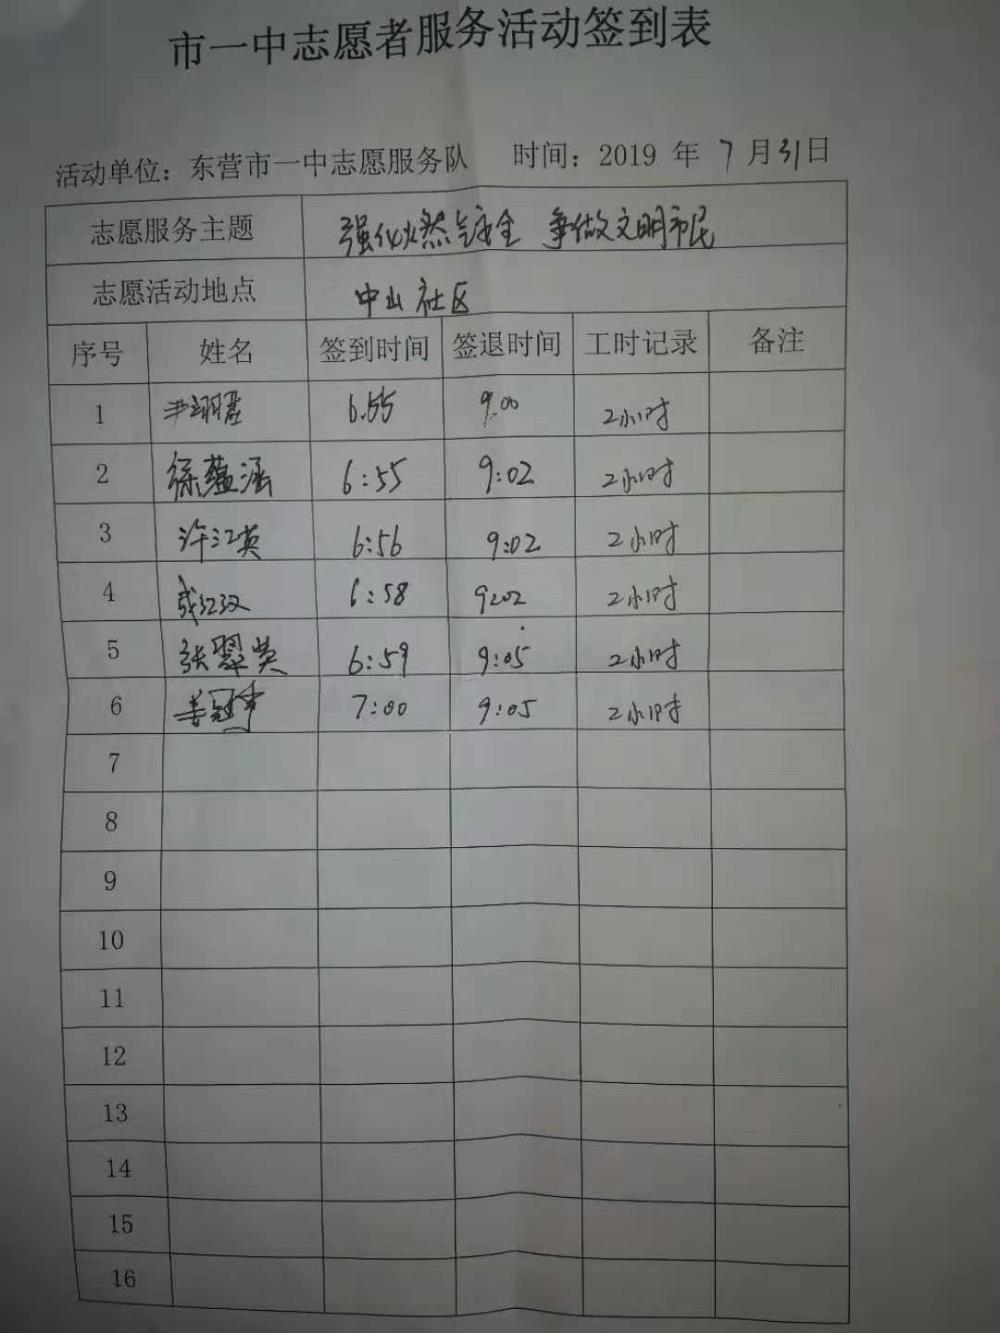 市一中志愿者服务活动签到表
活动单位：东营市一中志愿服务队 时间：2019 年 7 月 31 日
志愿服务主题 强化燃气安全 争做文明市民
志愿活动地点 中山社区
序号 姓名 签到时间 签退时间 工时记录 备注
1 尹翊君 6.55 9.00 2小时
2 徐蕴涵 6:55 9:02 2小时
3 许江英 6:56 9:02 2小时
4 6:58 9:02 2小时
5 张翠英 6:59 9:05 2小时
6 7:00 9:05 2小时
7
8
9
10
11
12
13
14
15
16